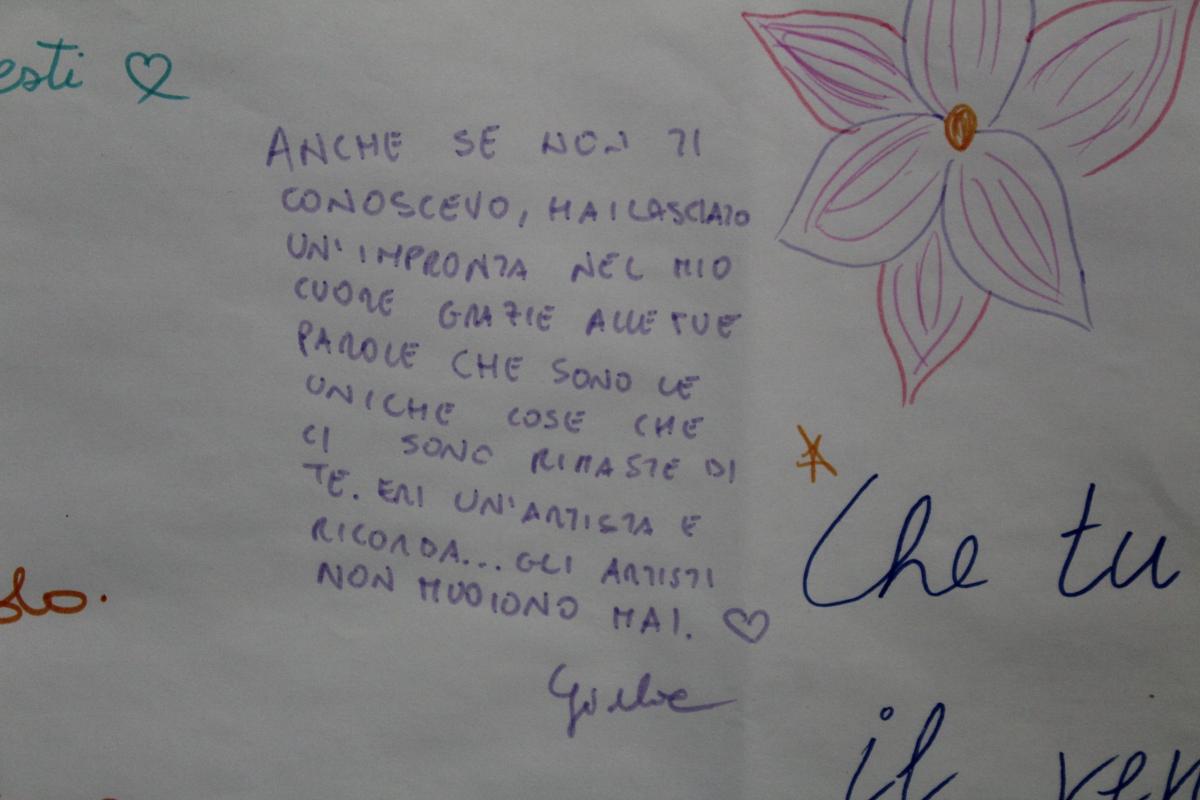 esti ♡
ANCHE SE NON TI
CONOSCEVO, HAI LASCIATO
UN'IMPRONTA NEL MIO
CUORE GRAZIE ALLE TUE
PAROLE CHE SONO LE
UNICHE COSE CHE
CI SONO RIMASTE DI
TE. ERI UN'ARTISTA E
RICORDA... GLI ARTISTI
NON MUOIONO MAI. ♡
Che tu
il ven